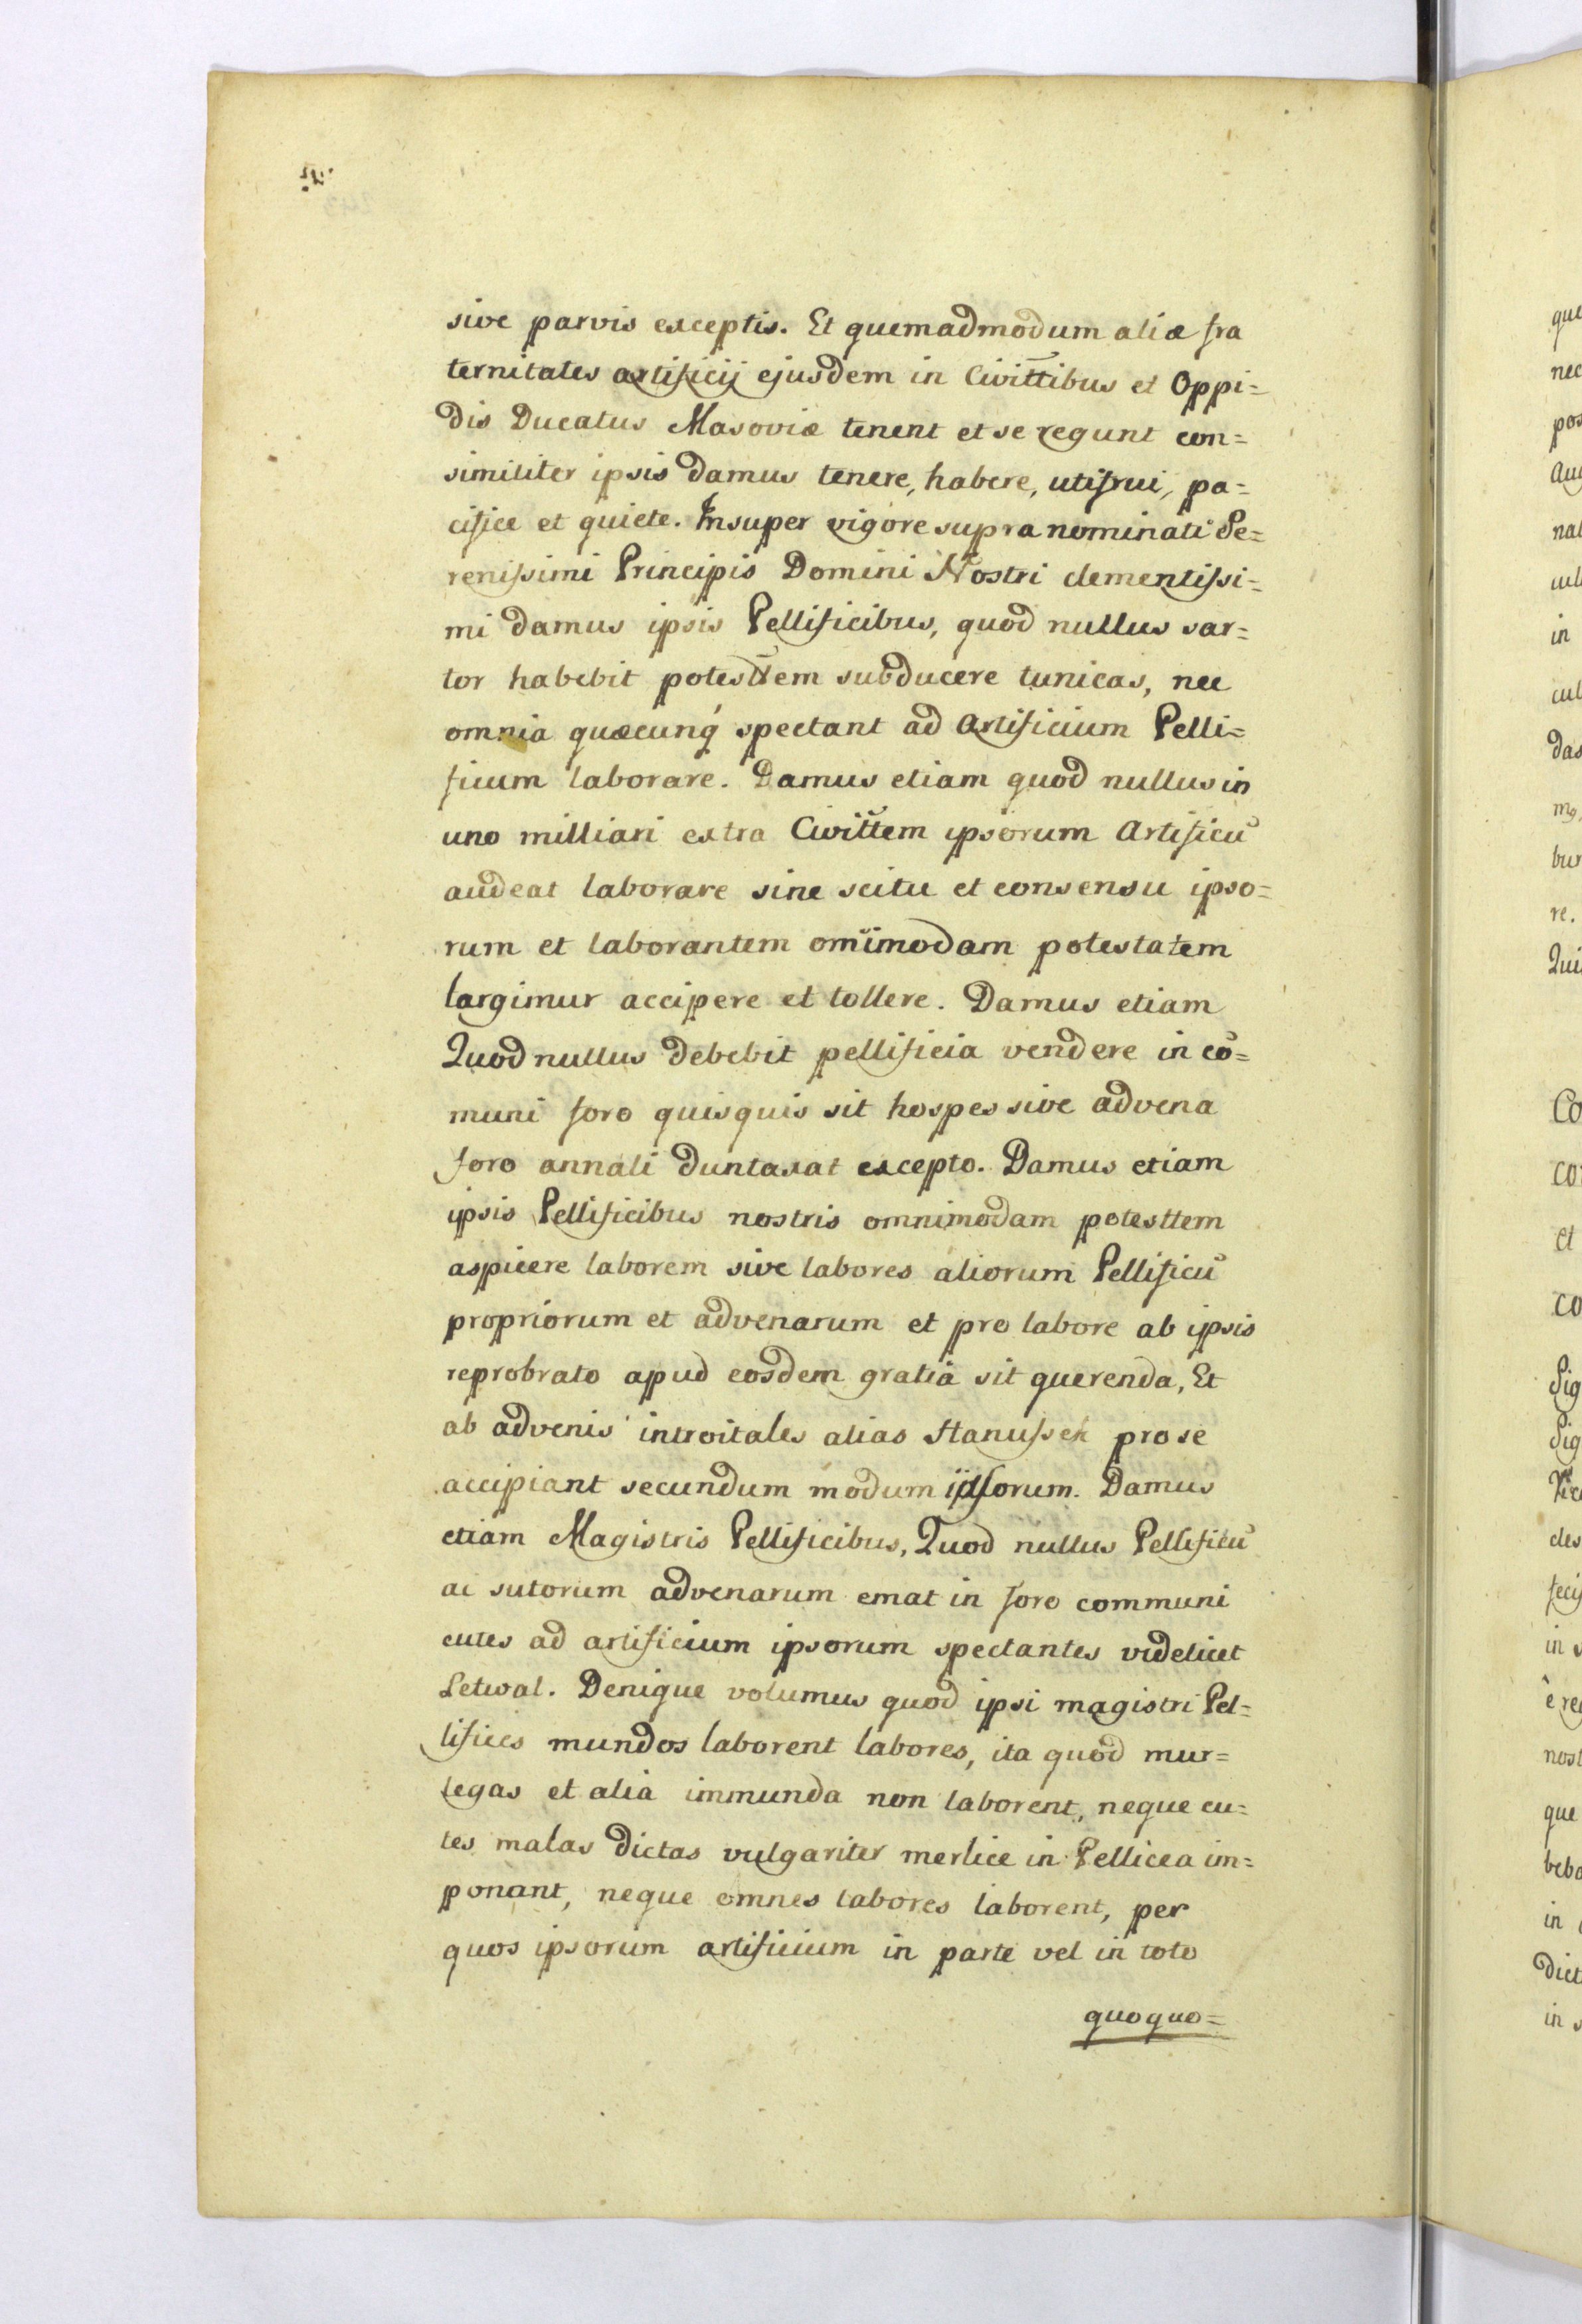 sive parvis exceptis. Et quemadmodum aliæ fra
ternitates artificij ejusdem in Civittibus et Oppi=
dis Ducatus Masoviæ tenent et se regunt con=
similiter ipsis damus tenere, habere, utifrui, pa=
cifice et quiete. Insuper vigore supra nominati Se=
renissimi Principis Domini Nostri clementissi=
mi damus ipsis Pellificibus, quod nullus sar=
tor habebit potesttem subducere tunicas, nec
omnia quæcunq́ spectant ad Artificium Pelli=
ficum laborare. Damus etiam quod nullus in
uno milliari extra Civittem ipsorum Artificũ
audeat laborare sine scitu et consensu ipso=
rum et laborantem om̃imodam potestatem
largimur accipere et tollere. Damus etiam
Quod nullus debebit pellificia vendere in cõ=
muni foro quisquis sit hospes sive advena
foro annali duntaxat excepto. Damus etiam
ipsis Pellificibus nostris omnimodam potesttem
aspicere laborem sive labores aliorum Pellificũ
propriorum et advenarum et pro labore ab ipsis
reprobrato apud eosdem gratia sit querenda, Et
ab advenis introitales alias Stanussek pro se
accipiant secundum modum ipsorum. Damus
etiam Magistris Pellificibus, Quod nullus Pellificũ
ac sutorum advenarum emat in foro communi
cutes ad artificium ipsorum spectantes videlicet
Letwal. Denique volumus quod ipsi magistri Pel=
lifices mundos laborent labores, ita quod mur=
legas et alia immunda non laborent, neque cu=
tes malas dictas vulgariter merlice in Pellicea im=
ponant, neque omnes labores laborent, per
quos ipsorum artificium in parte vel in toto
quoquo=